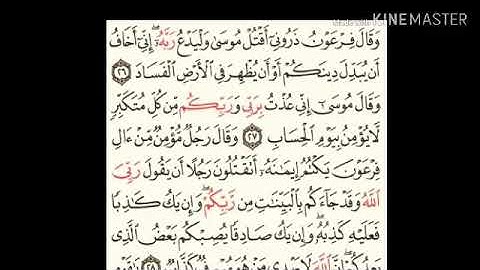 KINEMASTER
وَقَالَ فِرْعَوْنُ ذَرُونِىٓ أَقْتُلْ مُوسَىٰ وَلْيَدْعُ رَبَّهُۥٓ ۖ إِنِّىٓ أَخَافُ
أَن يُبَدِّلَ دِينَكُمْ أَوْ أَن يُظْهِرَ فِى ٱلْأَرْضِ ٱلْفَسَادَ ٢٦
وَقَالَ مُوسَىٰٓ إِنِّى عُذْتُ بِرَبِّى وَرَبِّكُم مِّن كُلِّ مُتَكَبِّرٍ
لَّا يُؤْمِنُ بِيَوْمِ ٱلْحِسَابِ ٢٧ وَقَالَ رَجُلٌ مُّؤْمِنٌ مِّنْ ءَالِ
فِرْعَوْنَ يَكْتُمُ إِيمَٰنَهُۥٓ أَتَقْتُلُونَ رَجُلًا أَن يَقُولَ رَبِّىَ
ٱللَّهُ وَقَدْ جَآءَكُم بِٱلْبَيِّنَٰتِ مِن رَّبِّكُمْ ۖ وَإِن يَكُ كَٰذِبًا
فَعَلَيْهِ كَذِبُهُۥ ۖ وَإِن يَكُ صَادِقًا يُصِبْكُم بَعْضُ ٱلَّذِى
يَعِدُكُمْ ۖ إِنَّ ٱللَّهَ لَا يَهْدِى مَنْ هُوَ مُسْرِفٌ كَذَّابٌ ٢٨ يَٰقَوْمِ